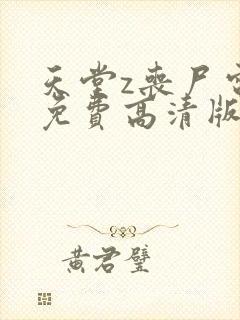 天堂z丧尸
免费高清版
黄君璧